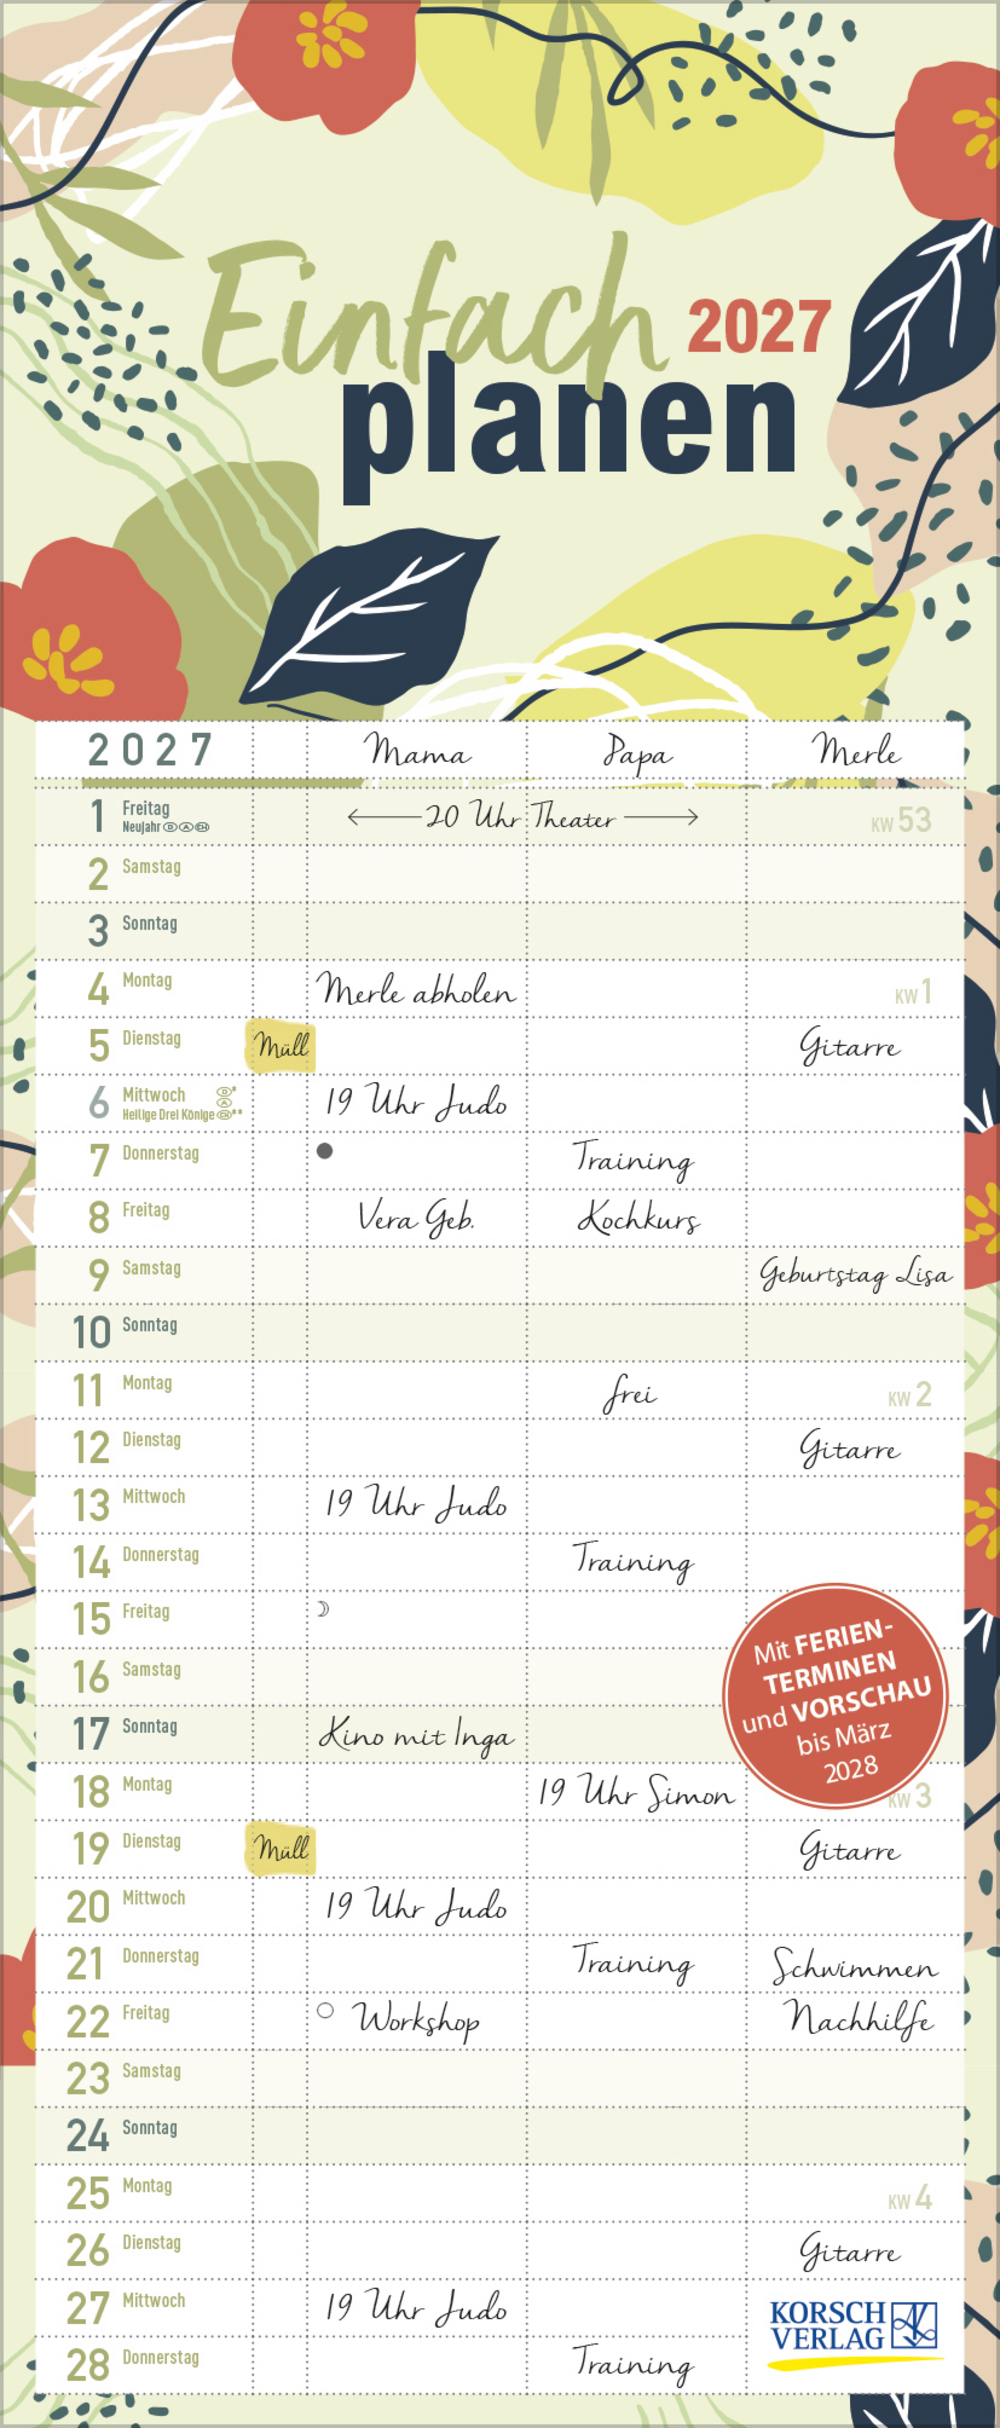 Einfach 2027
planen
2027 Mama Papa Merle
1 Freitag ← 20 Uhr Theater → KW 53
Neujahr D A CH
2 Samstag
3 Sonntag
4 Montag Merle abholen KW 1
5 Dienstag Müll Gitarre
6 Mittwoch 19 Uhr Judo
Heilige Drei Könige
7 Donnerstag Training
8 Freitag Vera Geb. Kochkurs
9 Samstag Geburtstag Lisa
10 Sonntag
11 Montag frei KW 2
12 Dienstag Gitarre
13 Mittwoch 19 Uhr Judo
14 Donnerstag Training
15 Freitag
16 Samstag
17 Sonntag Kino mit Inga
18 Montag 19 Uhr Simon KW 3
19 Dienstag Müll Gitarre
20 Mittwoch 19 Uhr Judo
21 Donnerstag Training Schwimmen
22 Freitag Workshop Nachhilfe
23 Samstag
24 Sonntag
25 Montag KW 4
26 Dienstag Gitarre
27 Mittwoch 19 Uhr Judo
28 Donnerstag Training
Mit FERIEN-
TERMINEN
und VORSCHAU
bis März
2028
KORSCH
VERLAG